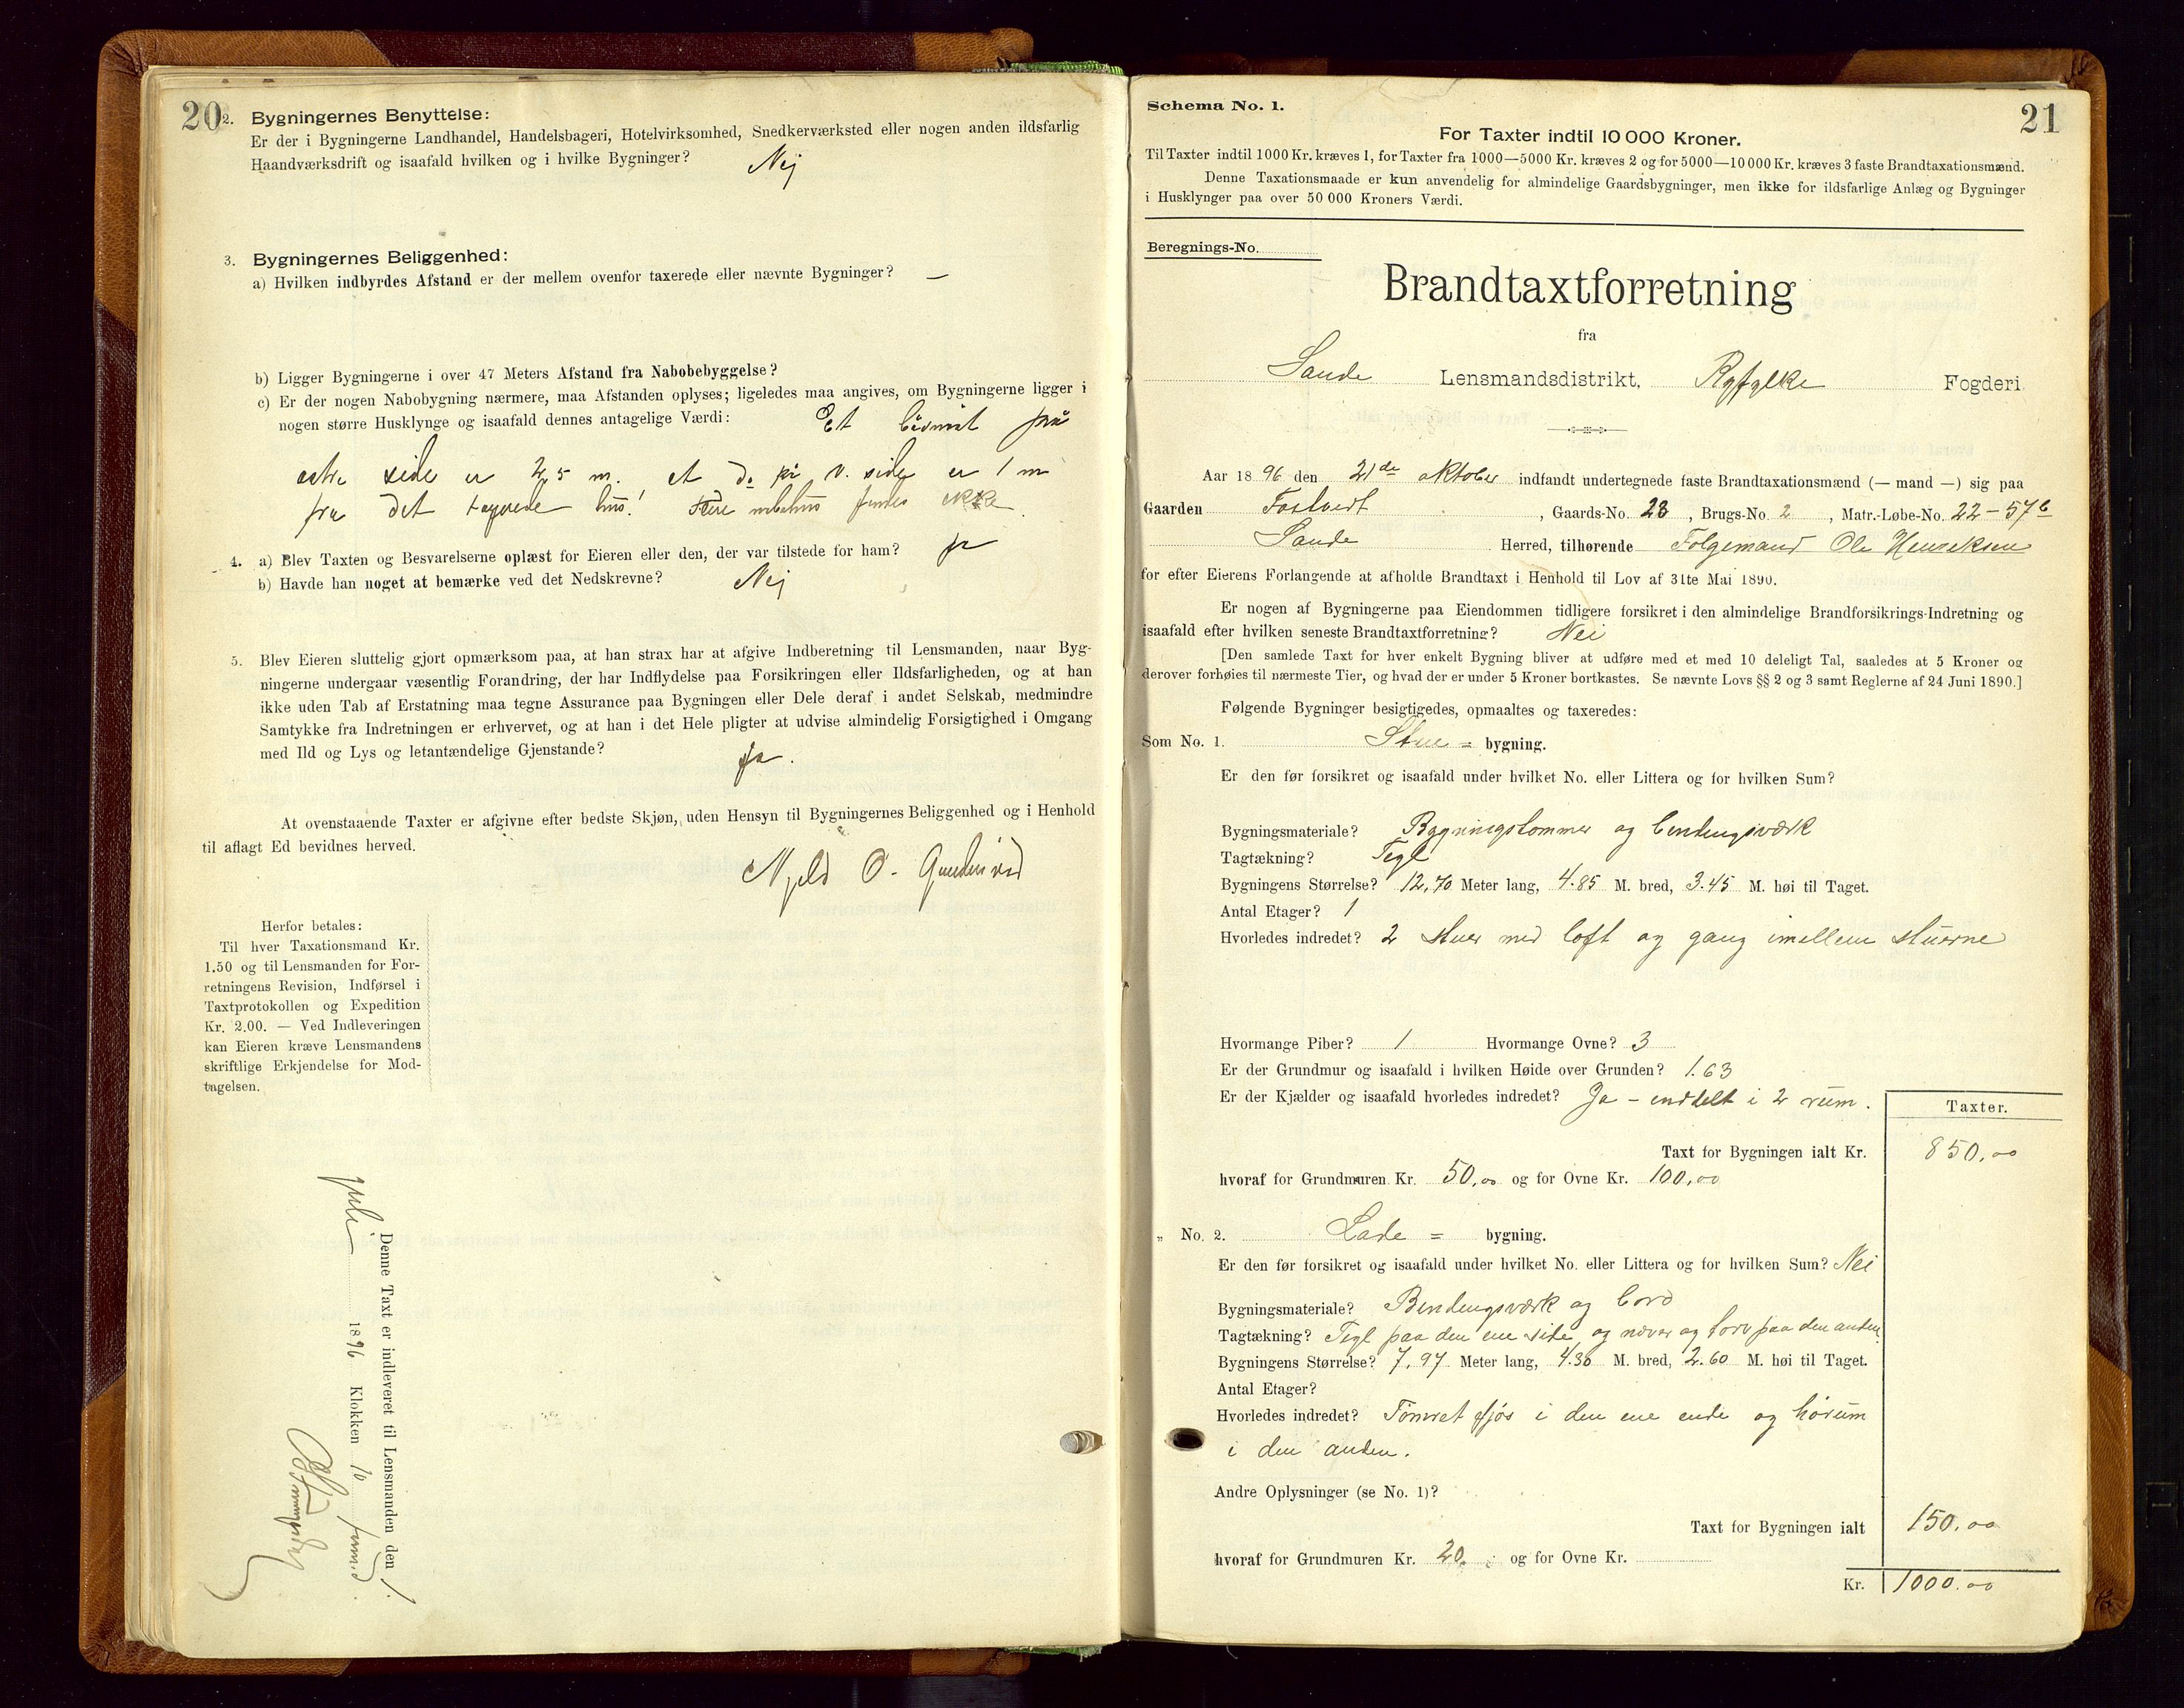 20
2. Bygningernes Benyttelse:
Er der i Bygningerne Landhandel, Handelsbageri, Hotelvirksomhed, Snedkerværksted eller nogen anden ildsfarlig
Haandværksdrift og isaafald hvilken og i hvilke Bygninger? Nej
3. Bygningernes Beliggenhed:
a) Hvilken indbyrdes Afstand er der mellem ovenfor taxerede eller nævnte Bygninger? —
b) Ligger Bygningerne i over 47 Meters Afstand fra Nabobebyggelse?
c) Er der nogen Nabobygning nærmere, maa Afstanden oplyses; ligeledes maa angives, om Bygningerne ligger i
nogen større Husklynge og isaafald dennes antagelige Værdi: Et på
side er 2,5 m. et do på v. side er 1 m
fra det hus! findes ikke.
4. a) Blev Taxten og Besvarelserne oplæst for Eieren eller den, der var tilstede for ham? ja
b) Havde han noget at bemærke ved det Nedskrevne? Nej
5. Blev Eieren sluttelig gjort opmærksom paa, at han strax har at afgive Indberetning til Lensmanden, naar Byg-
ningerne undergaar væsentlig Forandring, der har Indflydelse paa Forsikringen eller Ildsfarligheden, og at han
ikke uden Tab af Erstatning maa tegne Assurance paa Bygningen eller Dele deraf i andet Selskab, medmindre
Samtykke fra Indretningen er erhvervet, og at han i det Hele pligter at udvise almindelig Forsigtighed i Omgang
med Ild og Lys og letantændelige Gjenstande? Ja.
At ovenstaaende Taxter er afgivne efter bedste Skjøn, uden Hensyn til Bygningernes Beliggenhed og i Henhold
til aflagt Ed bevidnes herved.
O.
Herfor betales:
Til hver Taxationsmand Kr.
1.50 og til Lensmanden for For-
retningens Revision, Indførsel i
Taxtprotokollen og Expedition
Kr. 2.00. — Ved Indleveringen
kan Eieren kræve Lensmandens
skriftlige Erkjendelse for Mod-
tagelsen.
Denne Taxt er indleveret til Lensmanden den 1.
juli 1896 Klokken 10 formid.
21
Schema No. 1.
For Taxter indtil 10 000 Kroner.
Til Taxter indtil 1000 Kr. kræves 1, for Taxter fra 1000—5000 Kr. kræves 2 og for 5000—10000 Kr. kræves 3 faste Brandtaxationsmænd.
Denne Taxationsmaade er kun anvendelig for almindelige Gaardsbygninger, men ikke for ildsfarlige Anlæg og Bygninger
i Husklynger paa over 50 000 Kroners Værdi.
Beregnings-No.
Brandtaxtforretning
fra
Sande Lensmandsdistrikt, Ryfylke Fogderi
Aar 1896 den 21de oktober indfandt undertegnede faste Brandtaxationsmænd (— mand —) sig paa
Gaarden Fostvedt, Gaards-No. 28, Brugs-No. 2, Matr.-Løbe-No. 22-57b
Sande Herred, tilhørende Følgemand Ole Henriksen
for efter Eierens Forlangende at afholde Brandtaxt i Henhold til Lov af 31te Mai 1890.
Er nogen af Bygningerne paa Eiendommen tidligere forsikret i den almindelige Brandforsikrings-Indretning og
isaafald efter hvilken seneste Brandtaxtforretning? Nei
[Den samlede Taxt for hver enkelt Bygning bliver at udføre med et med 10 deleligt Tal, saaledes at 5 Kroner og
derover forhøies til nærmeste Tier, og hvad der er under 5 Kroner bortkastes. Se nævnte Lovs §§ 2 og 3 samt Reglerne af 24 Juni 1890.]
Følgende Bygninger besigtigedes, opmaaltes og taxeredes:
Som No. 1. Stue = bygning.
Er den før forsikret og isaafald under hvilket No. eller Littera og for hvilken Sum?
Bygningsmateriale? Bygningstømmer og bindingsværk
Tagtækning? Tegl
Bygningens Størrelse? 12,70 Meter lang, 4.85 M. bred, 3.45 M. høi til Taget.
Antal Etager? 1
Hvorledes indredet? 2 stuer med loft og gang imellem stuerne
Hvormange Piber? 1 Hvormange Ovne? 3
Er der Grundmur og isaafald i hvilken Høide over Grunden? 1.63
Er der Kjælder og isaafald hvorledes indredet? Ja - inddelt i 2 rum.
Taxter.
Taxt for Bygningen ialt Kr. 850,00
hvoraf for Grundmuren Kr. 50,00 og for Ovne Kr. 100,00
„ No. 2. Lade = bygning.
Er den før forsikret og isaafald under hvilket No. eller Littera og for hvilken Sum? Nei
Bygningsmateriale? Bindingsværk og bord
Tagtækning? Tegl paa den ene side og næver og torv paa den anden.
Bygningens Størrelse? 7,97 Meter lang, 4.30 M. bred, 2.60 M. høi til Taget.
Antal Etager?
Hvorledes indredet? Tømret fjøs i den ene ende og hørum
i den anden.
Andre Oplysninger (se No. 1)?
Taxt for Bygningen ialt 150,00
hvoraf for Grundmuren Kr. 20. og for Ovne Kr.
Kr. 1000.00